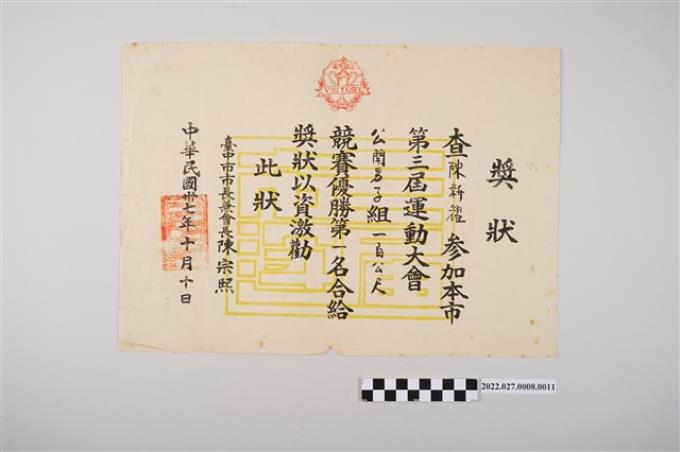 VICTORY
獎狀
查陳新禮參加本市
第三屆運動大會
公開男子組一百公尺
競賽優勝第一名合給
獎狀以資激勸
此狀
臺中市市長兼會長陳宗熙
中華民國卅七年十月十日
2022.027.0008.0011